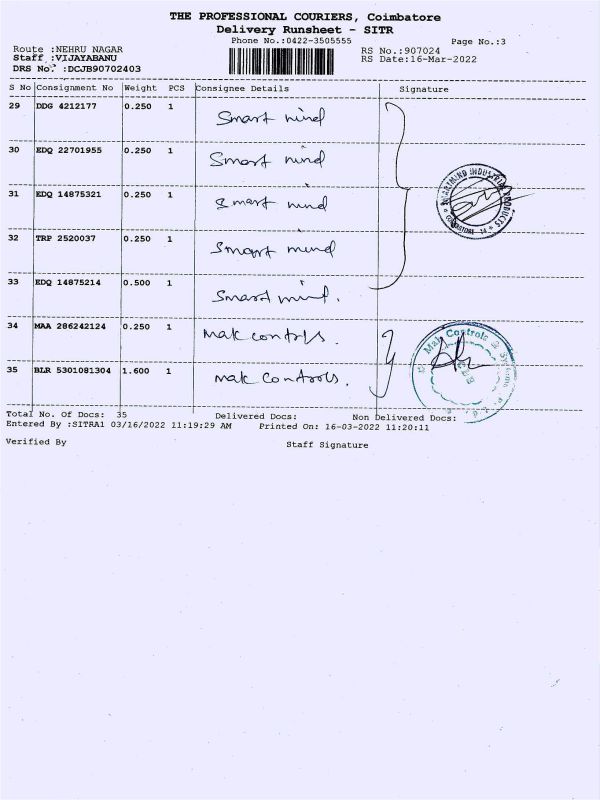 THE PROFESSIONAL COURIERS, Coimbatore
Delivery Runsheet - SITR
Phone No.:0422-3505555
Page No.:3
Route :NEHRU NAGAR
RS No.:907024
Staff :VIJAYABANU
RS Date:16-Mar-2022
DRS No. :DCJB90702403
S No Consignment No Weight PCS Consignee Details Signature
29 DDG 4212177 0.250 1 Smart mind
30 EDQ 22701955 0.250 1 Smart mind
31 EDQ 14875321 0.250 1 Smart mind
SMARTMIND INDUSTRIAL PRODUCTS
COIMBATORE 14
32 TRP 2520037 0.250 1 Smart mind
33 EDQ 14875214 0.500 1 Smart mind.
34 MAA 286242124 0.250 1 Mak controls.
Mak Controls & Systems
35 BLR 5301081304 1.600 1 Mak Controls.
Total No. Of Docs: 35 Delivered Docs: Non Delivered Docs:
Entered By :SITRA1 03/16/2022 11:19:29 AM Printed On: 16-03-2022 11:20:11
Verified By Staff Signature